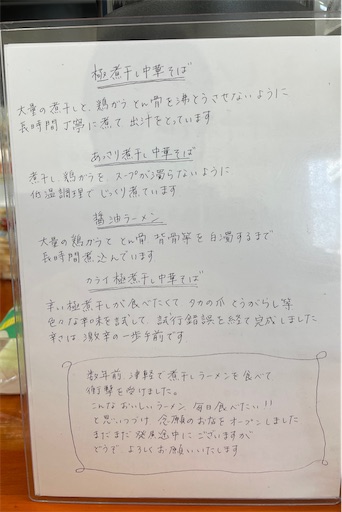 極煮干し中華そば
大量の煮干しと、鶏がら とん骨を沸とうさせないように
長時間丁寧に煮て 出汁をとっています
あっさり煮干し中華そば
煮干し 鶏がらを スープが濁らないように
低温調理で じっくり煮ています
醤油ラーメン
大量の鶏がらと とん骨 背骨等を 白濁するまで
長時間煮込んでいます
カライ 極煮干し中華そば
辛い極煮干しが食べたくて タカの爪 とうがらし等
色々な辛味を試して、試行錯誤を経て完成しました
辛さは 激辛の一歩手前です
数年前 津軽で煮干しラーメンを食べて
衝撃を受けました。
こんなおいしいラーメン 毎日食べたい!!
と思いつづけ 念願のお店をオープンしました
まだまだ 発展途中にございますが
どうぞ よろしくお願いいたします